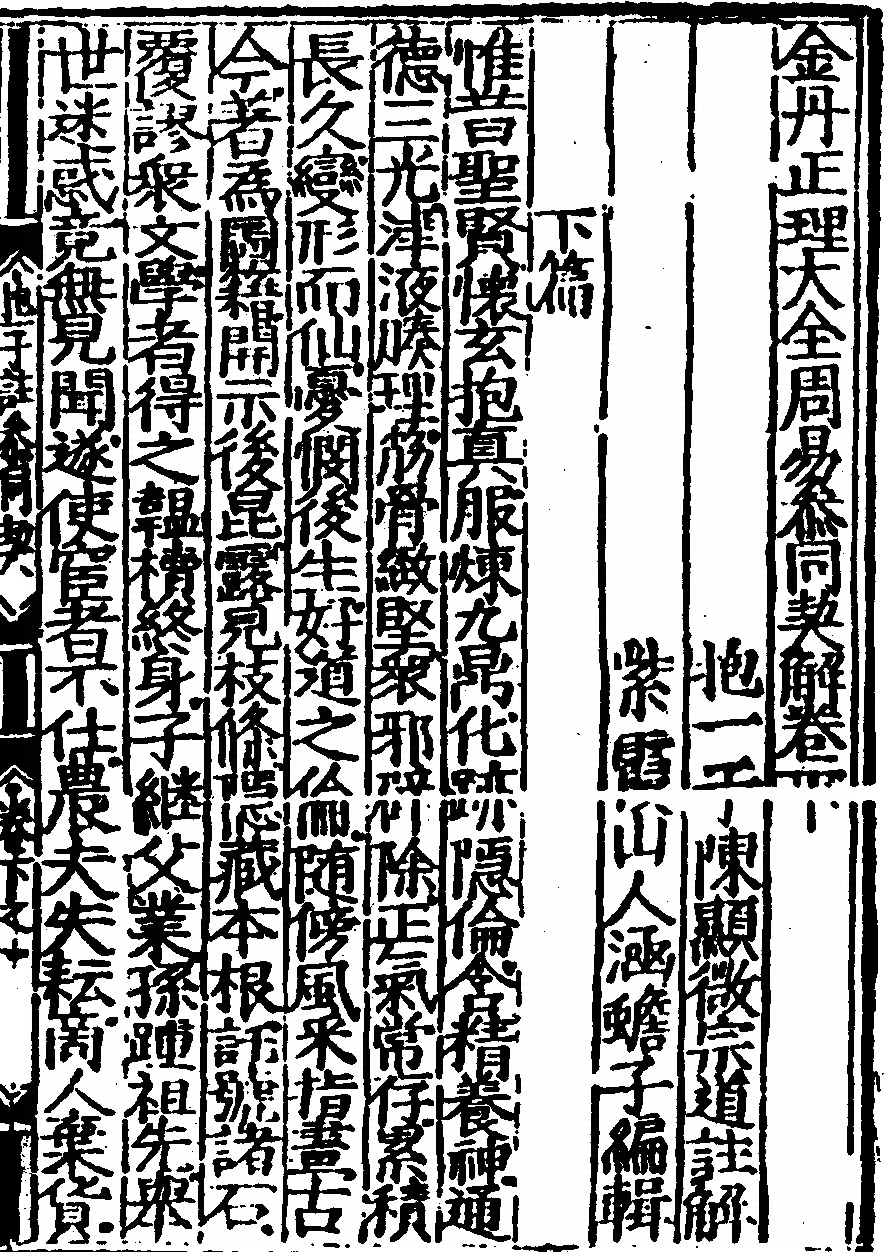 金丹正理大全周易叅同契解卷下
抱一子陳顯微宗道註解
紫霞山人涵蟾子編輯
下篇
惟昔聖賢懷玄抱真服煉九鼎化跡隱倫含精養神通
德三光津液腠理筋骨緻堅衆邪辟除正氣常存累積
長久變形而仙憂憫後生好道之倫隨傍風采指畫古
今著為圖籍開示後昆露見枝條隱藏本根託號諸石
覆謬衆文學者得之韞櫝終身子繼父業孫踵祖先舉
世迷惑竟無見聞遂使宦者不仕農夫失耘商人棄貨
抱一子註叅同契 卷下之十